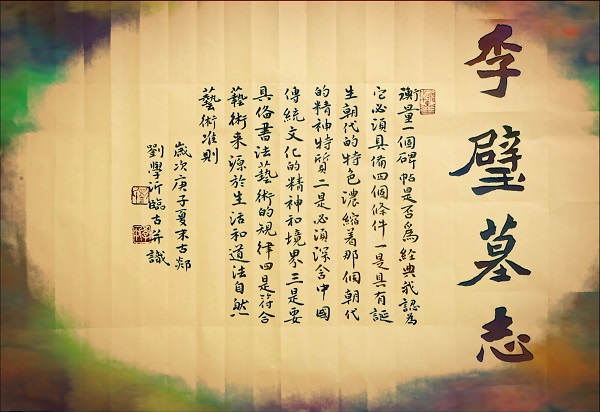 李璧墓志
衡量一個碑帖是否爲經典我認為
它必須具備四個條件一是具有誕
生朝代的特色濃縮着那個朝代
的精神特質二是必須深含中國
傳統文化的精神和境界三是要
具俻書法藝術的規律四是符合
藝術来源於生活和道法自然
藝術准則
歲次庚子夏末古郯
劉學沂臨古并識